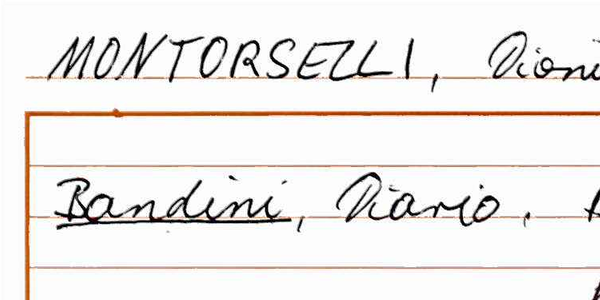 MONTORSELLI, Dioni
Bandini, Diario.